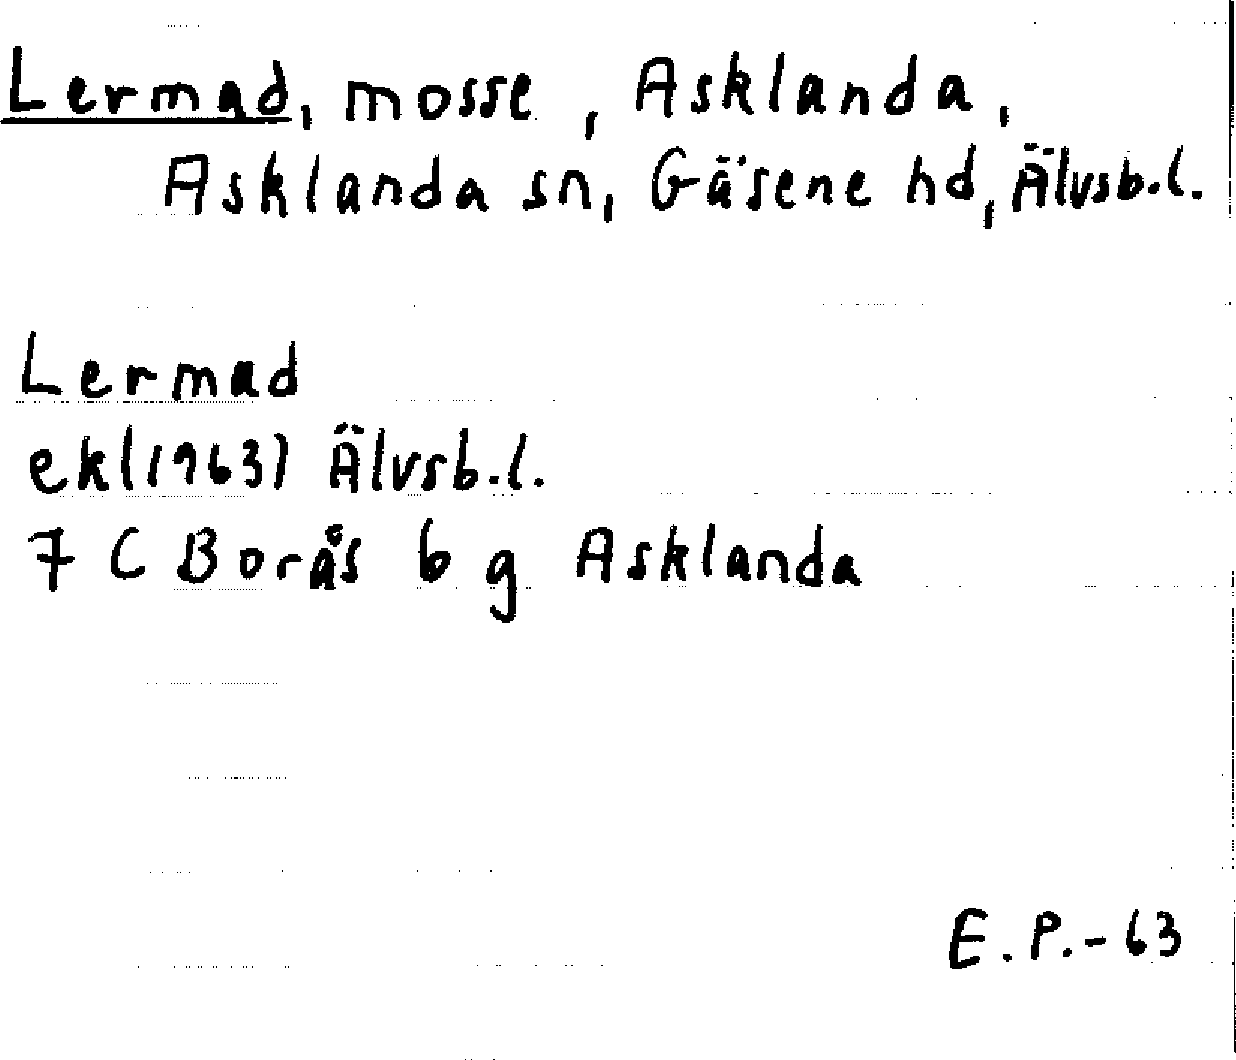 Lermad, mosse, Asklanda,
Asklanda sn, Gäsene hd, Älvsb.l.
Lermad
ek(1963) Älvsb.l.
7 C Borås 6 g Asklanda
E.P.-63